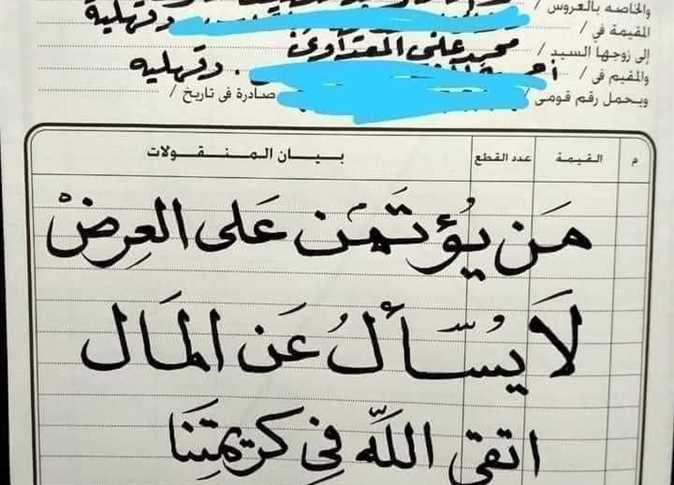 والخاصه بالعروس /
المقيمة في / دقهلية
إلى زوجها السيد / محمد على المعداوى
والمقيم في / دقهليه
ويحمل رقم قومى / صادرة في تاريخ /
م القيمة عدد القطع بيان المنقولات
مَن يُؤتَمَن عَلى العِرِضْ
لَا يُسّألُ عَن المَال
اتقي اللَّه فِي كريمتِنَا